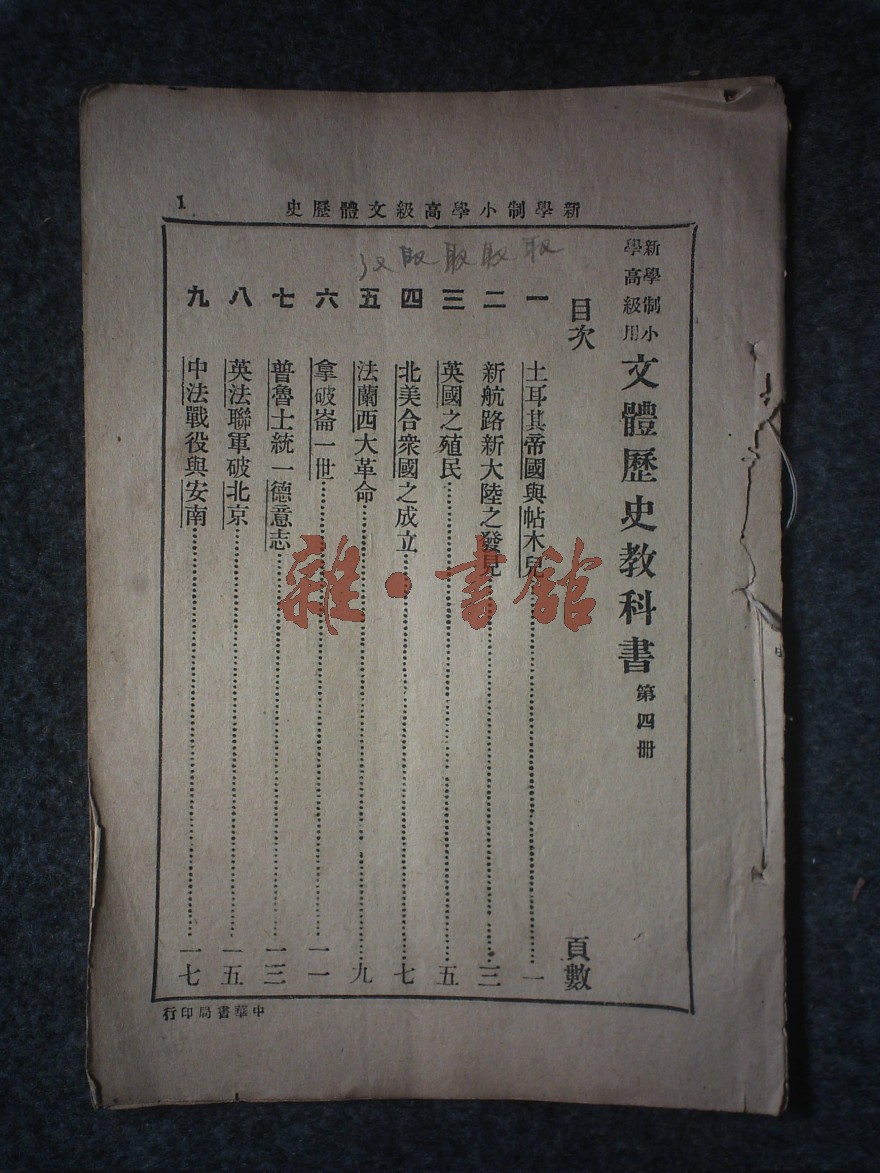 新學制小學高級文體歷史
1
新學制小
學高級用
文體歷史教科書 第四冊
目次 頁數
一 土耳其帝國與帖木兒 一
二 新航路新大陸之發見 三
三 英國之殖民 五
四 北美合衆國之成立 七
五 法蘭西大革命 九
六 拿破崙一世 一一
七 普魯士統一德意志 一三
八 英法聯軍破北京 一五
九 中法戰役與安南 一七
中華書局印行
雜·書館